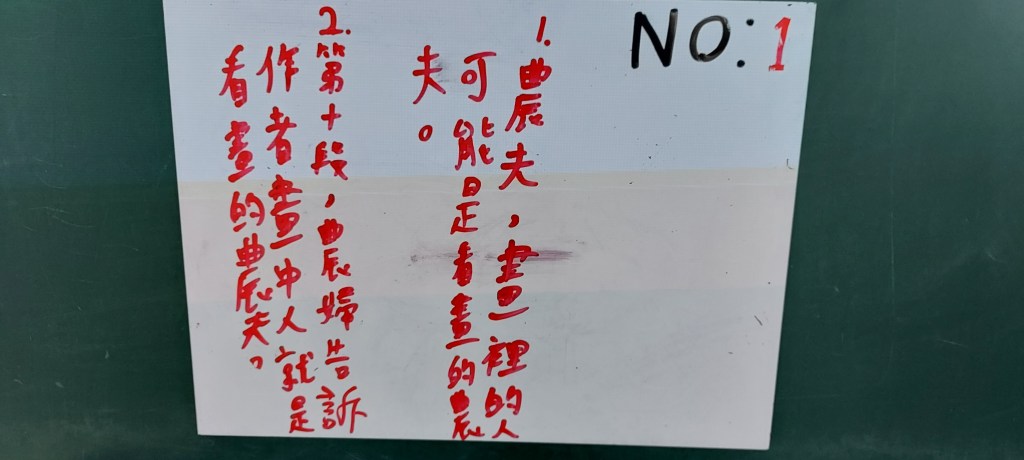 NO:1
1.農夫,畫裡的人
可能是看畫的農
夫。
2.第十段,農婦告訴
作者畫中人就是
看畫的農夫。